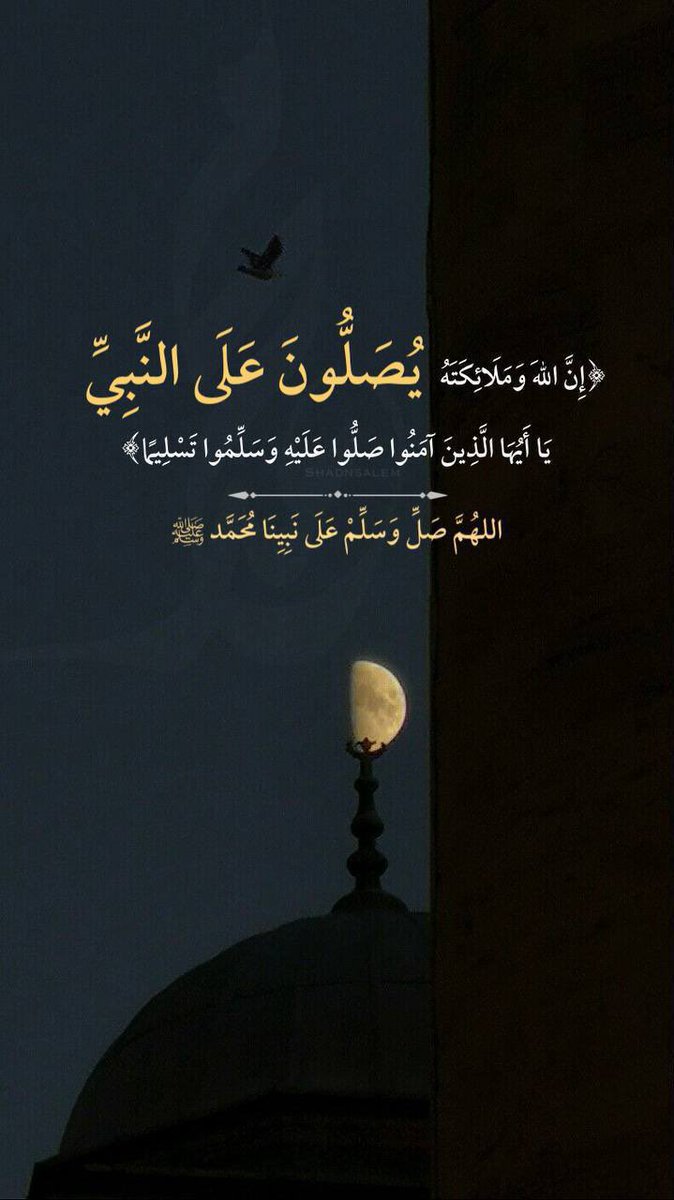 ﴿إِنَّ اللهَ وَمَلَائِكَتَهُ يُصَلُّونَ عَلَى النَّبِيِّ
يَا أَيُّهَا الَّذِينَ آمَنُوا صَلُّوا عَلَيْهِ وَسَلِّمُوا تَسْلِيمًا﴾
SHADNSALEM
اللهُمَّ صَلِّ وَسَلِّمْ عَلَى نَبِينَا مُحَمَّد ﷺ